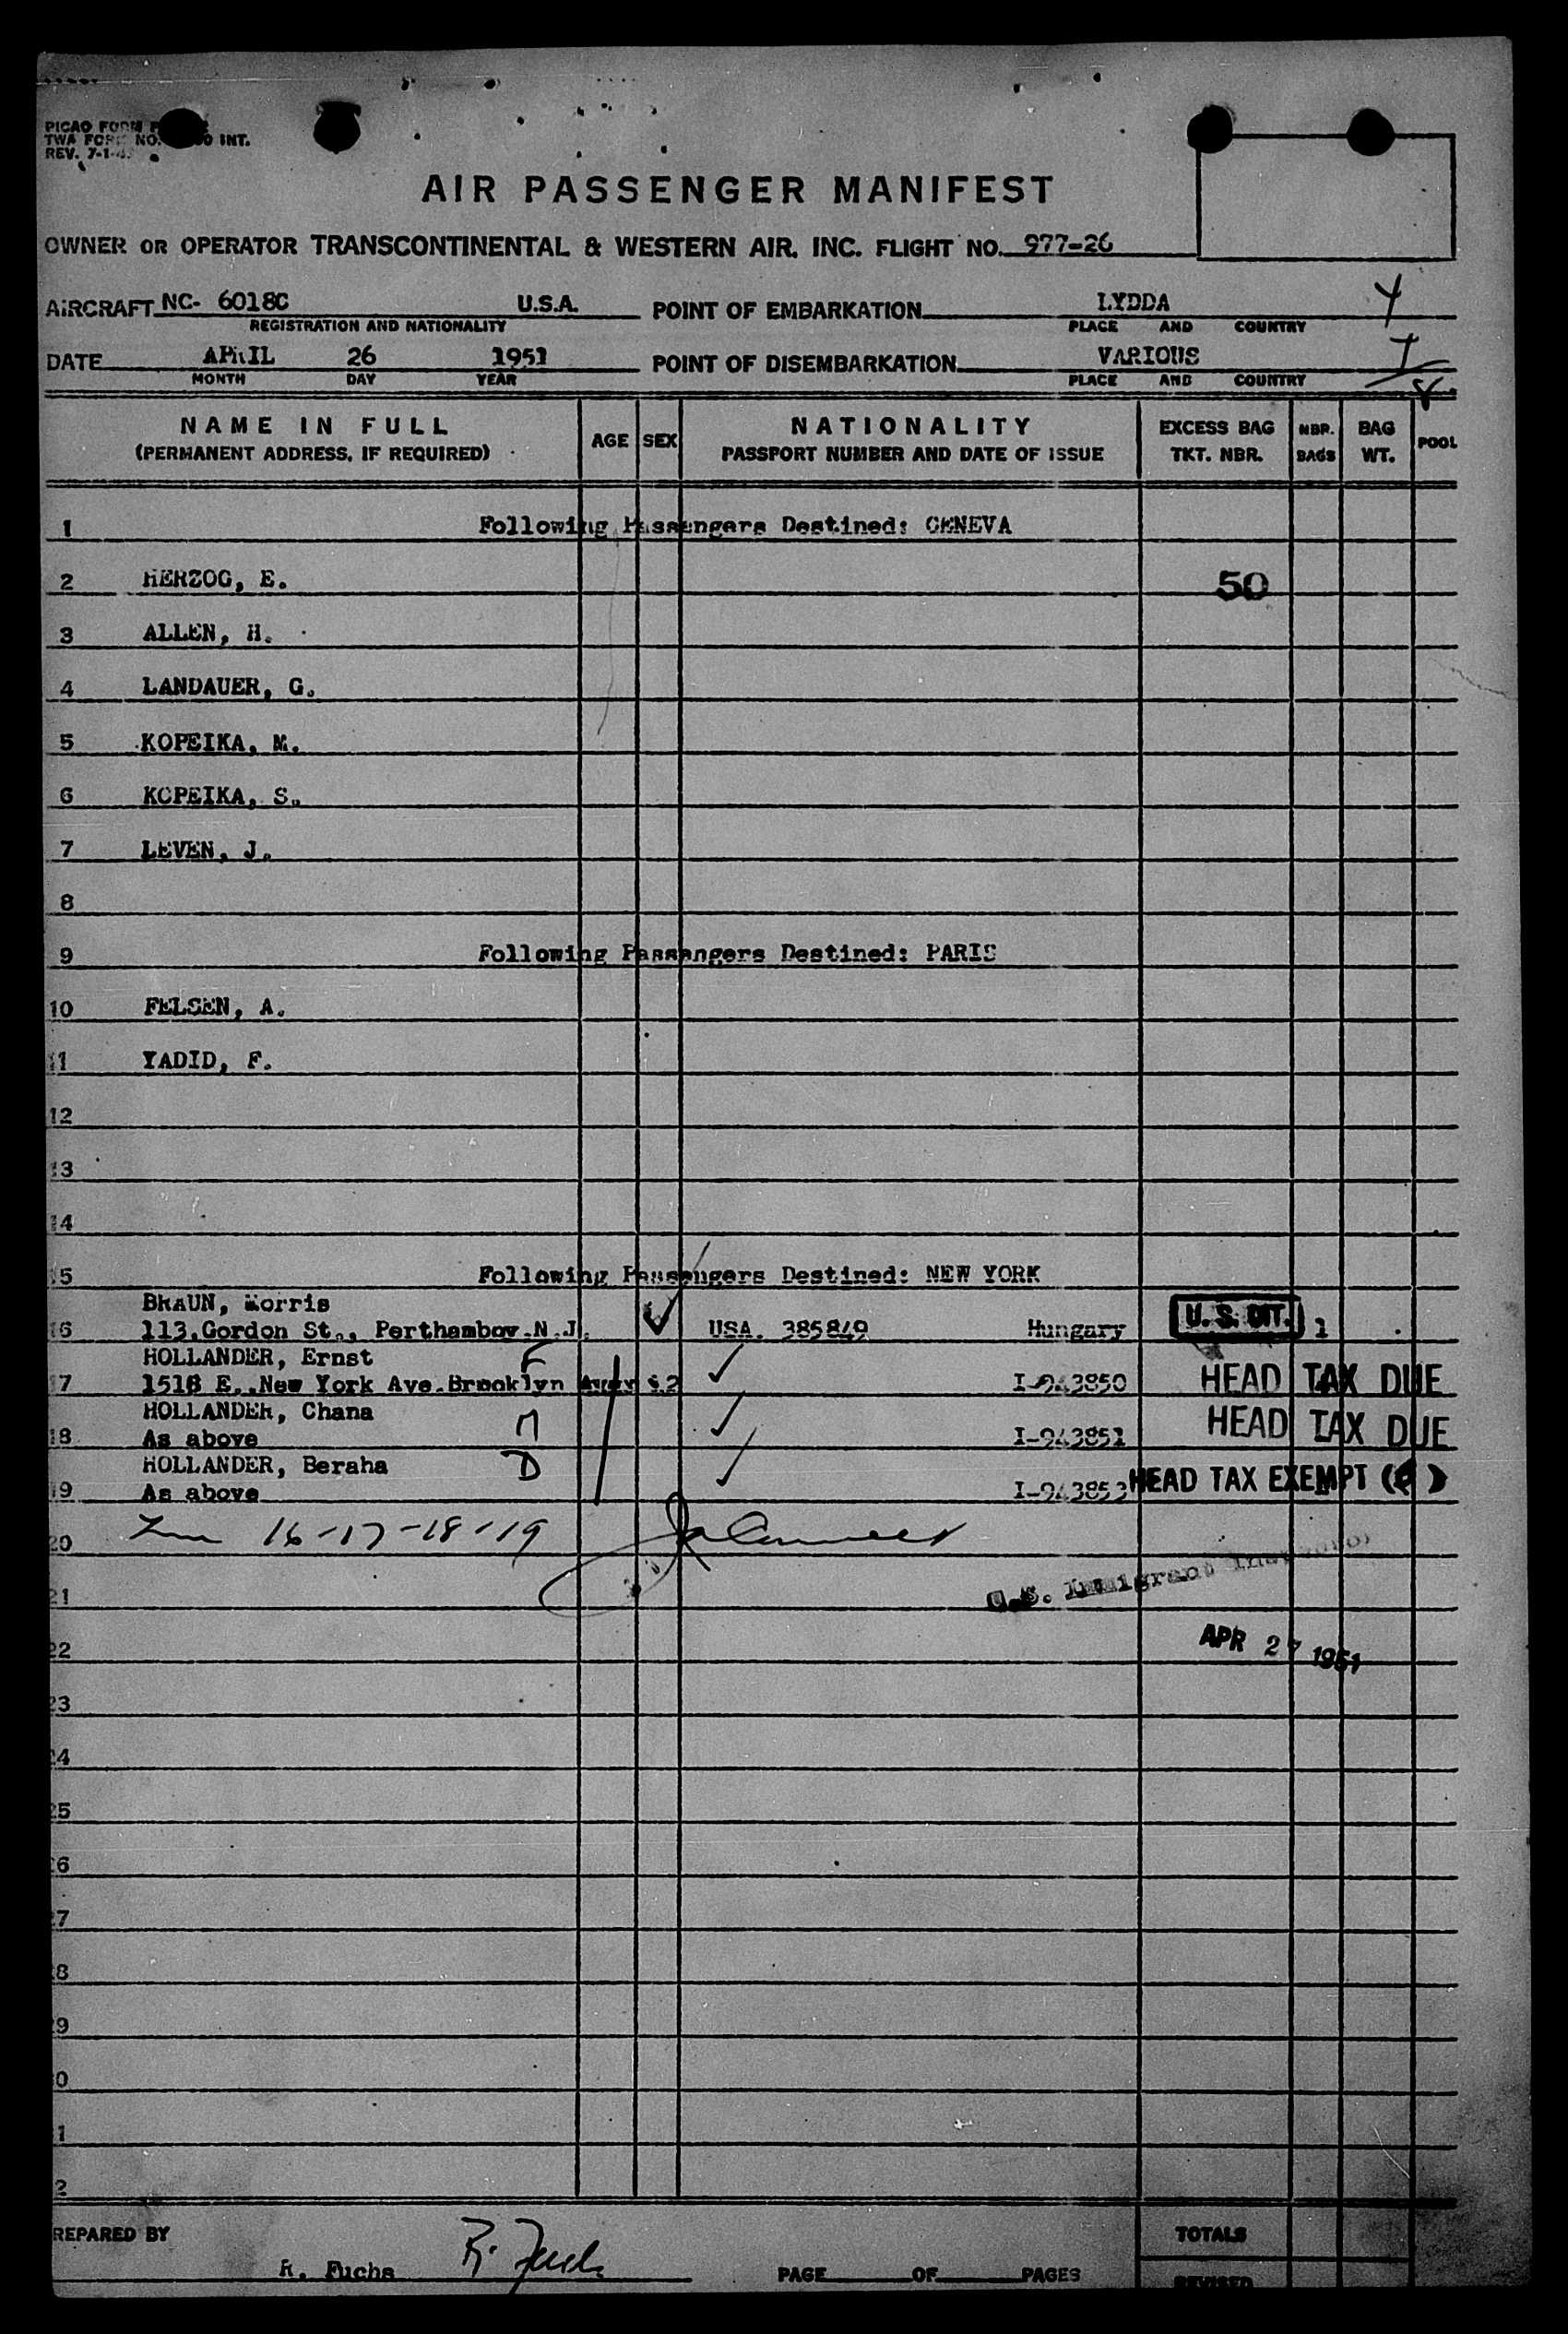 PICAO FORM
TWA FORM NO. INT.
REV. 7-1-
AIR PASSENGER MANIFEST
OWNER OR OPERATOR TRANSCONTINENTAL & WESTERN AIR, INC. FLIGHT NO. 977-26
AIRCRAFT NC- 6018C U.S.A. POINT OF EMBARKATION LYDDA 4
REGISTRATION AND NATIONALITY PLACE AND COUNTRY
DATE APRIL 26 1951 POINT OF DISEMBARKATION VARIOUS
MONTH DAY YEAR PLACE AND COUNTRY
NAME IN FULL
(PERMANENT ADDRESS, IF REQUIRED)
AGE SEX
NATIONALITY
PASSPORT NUMBER AND DATE OF ISSUE
EXCESS BAG
TKT. NBR.
NBR.
BAGS
BAG
WT.
POOL
1 Following Passengers Destined: GENEVA
2 HERZOG, E. 50
3 ALLEN, H.
4 LANDAUER, G.
5 KOPEIKA, M.
6 KOPEIKA, S.
7 LEVEN, J.
8
9 Following Passengers Destined: PARIS
10 FELSEN, A.
11 YADID, F.
12
13
14
15 Following Passengers Destined: NEW YORK
BRAUN, Morris
16 113.Gordon St., Perthamboy.N.J. USA. 385849 Hungary U.S. CIT. 1
HOLLANDER, Ernst F
17 1518 E..New York Ave.Brooklyn I-943850 HEAD TAX DUE
HOLLANDER, Chana M
18 As above I-943851 HEAD TAX DUE
HOLLANDER, Beraha D
19 As above I-943853 HEAD TAX EXEMPT
20 16-17-18-19
21 U.S. Immigrant Inspector
22 APR 27 1951
23
24
25
26
27
28
29
30
31
32
PREPARED BY TOTALS
R. Fuchs R. Fuchs PAGE OF PAGES
REVISED